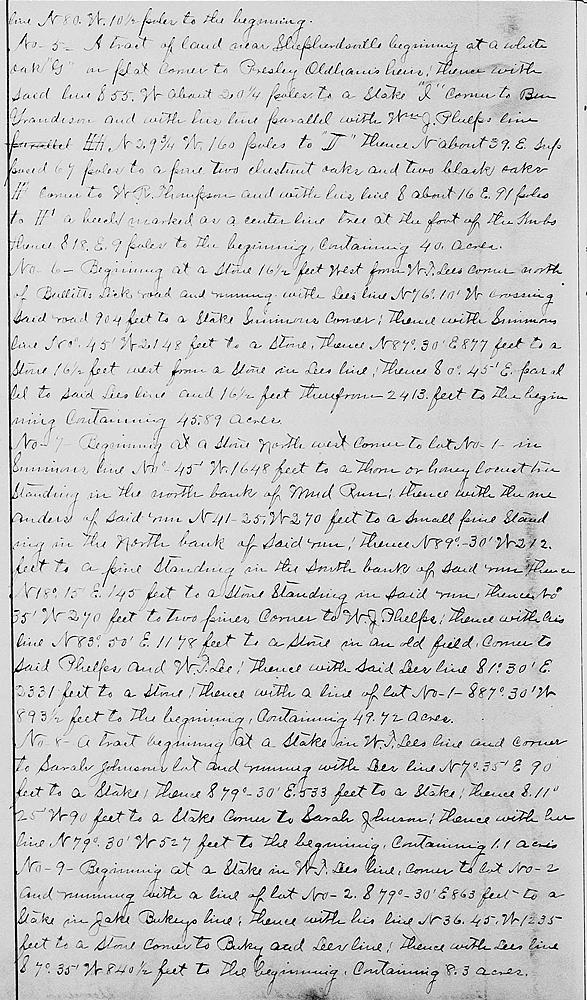 line N 80. W. 10 1/2 poles to the beginning.
No- 5- A tract of land near Shepherdsville beginning at a white
oak "G" on plat corner to Presley Oldham's heirs; thence with
said line S 55. W about 20 1/4 poles to a Stake "I" corner to Ben
Grandison and with his line parallel with Wm J. Phelps line
parallel HH. N 29 3/4 W. 160 poles to "II" thence N about 39. E. sup
posed 67 poles to a pine two chestnut oaks and two black oaks
H' corner to W R. Thompson and with his line S about 16 E. 91 poles
to H' a beech marked as a center line tree at the foot of the knobs
thence S 18. E. 9 poles to the beginning, Containing 40. acres.
No- 6- Beginning at a Stone 16 1/2 feet West from W. T. Lees corner north
of Bullitts Lick road and running with Lees line N 76°. 10' W crossing
said road 904 feet to a Stake Simmons Corner; thence with Simmons
line N 0°. 45' W 2148 feet to a Stone; thence N 87°. 30' E 877 feet to a
Stone 16 1/2 feet west from a Stone in Lees line; thence S 0°. 45' E. paral
lel to said Lees line and 16 1/2 feet therefrom 2413. feet to the begin
ning Containing 45.89 acres.
No- 7- Beginning at a Stone North west corner to lot No- 1- in
Simmons line N 0°. 45' W. 1648 feet to a thorn or honey locust tree
Standing in the north bank of Mud Run; thence with the me
anders of said run N 41-25. W 270 feet to a small pine Stand
ing in the North bank of said run; thence N 89°-30' W 312.
feet to a pine Standing in the South bank of said run thence
N 18°. 15' E. 145 feet to a Stone Standing in said run thence N 0°
35' W 270 feet to two pines Corner to W. J. Phelps; thence with his
line N 83°. 50' E. 1178 feet to a Stone in an old field, Corner to
said Phelps and W. T. Lee; thence with said Lees line S 1°. 30' E.
2331 feet to a Stone; thence with a line of lot No- 1- S 87°. 30' W
893 1/2 feet to the beginning, Containing 49.72 acres.
No- 8- A tract beginning at a Stake in W. T. Lees line and corner
to Sarah Johnson lot and running with Lees line N 7°. 35' E 90
feet to a Stake; thence S 79°-30' E. 533 feet to a Stake; thence S. 11°
25' W 90 feet to a Stake Corner to Sarah Johnson; thence with her
line N 79°. 30' W 527 feet to the beginning, Containing 1.1 acres
No- 9- Beginning at a Stake in W. T. Lees line, corner to lot No- 2
and running with a line of lot No- 2. S 79°-30' E 863 feet to a
Stake in Jake Bukeys line; thence with his line N 36. 45. W 1235
feet to a Stone Corner to Buky and Lees line; thence with Lees line
S 7°. 35' W 840 1/2 feet to the beginning. Containing 8.3 acres.